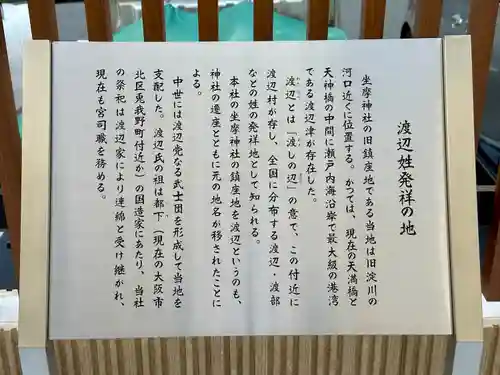 渡辺姓発祥の地
坐摩神社の旧鎮座地である当地は旧淀川の
河口近くに位置する。かつては、現在の天満橋と
天神橋の中間に瀬戸内海沿岸で最大級の港湾
である渡辺津が存在した。
渡辺とは「渡しの辺」の意で、この付近に
渡辺村が存し、全国に分布する渡辺・渡部
などの姓の発祥地として知られる。
本社の坐摩神社の鎮座地を渡辺というのも、
神社の遷座とともに元の地名が移されたことに
よる。
中世には渡辺党なる武士団を形成して当地を
支配した。渡辺氏の祖は都下(現在の大阪市
北区兎我野町付近か)の国造家にあたり、当社
の祭祀は渡辺家により連綿と受け継がれ、
現在も宮司職を務める。